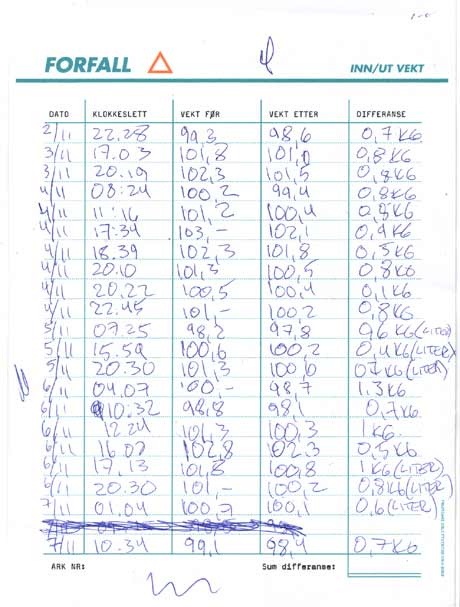 FORFALL
INN/UT VEKT
DATO KLOKKESLETT VEKT FØR VEKT ETTER DIFFERANSE
2/11 22.28 99,3 98,6 0,7 KG
3/11 17.03 101,8 101,0 0,8 KG
3/11 20.19 102,3 101,5 0,8 KG
4/11 08:24 100,2 99,4 0,8 KG
4/11 11:16 101,2 100,4 0,8 KG
4/11 17:34 103,- 102,1 0,9 KG
4/11 18.39 102,3 101,8 0,5 KG
4/11 20.10 101,3 100,5 0,8 KG
4/11 20.22 100,5 100,4 0,1 KG
4/11 22.45 101,- 100,2 0,8 KG
5/11 07.25 98,2 97,8 0,6 KG (LITER)
5/11 15.59 100,6 100,2 0,4 KG (LITER)
5/11 20.30 101,3 100,6 0,7 KG (LITER)
6/11 04.07 100,- 98,7 1.3 KG
6/11 10:32 98,8 98,1 0,7 KG
6/11 12.24 101,3 100,3 1 KG
6/11 16.07 102,8 102.3 0,5 KG
6/11 17.13 101,8 100,8 1 KG (LITER)
6/11 20.30 101,- 100,2 0,8 KG (LITER)
7/11 01.04 100,7 100,1 0,6 (LITER)
7/11 10.34 99,1 98,4 0,7 KG
ARK NR: Sum differanse: